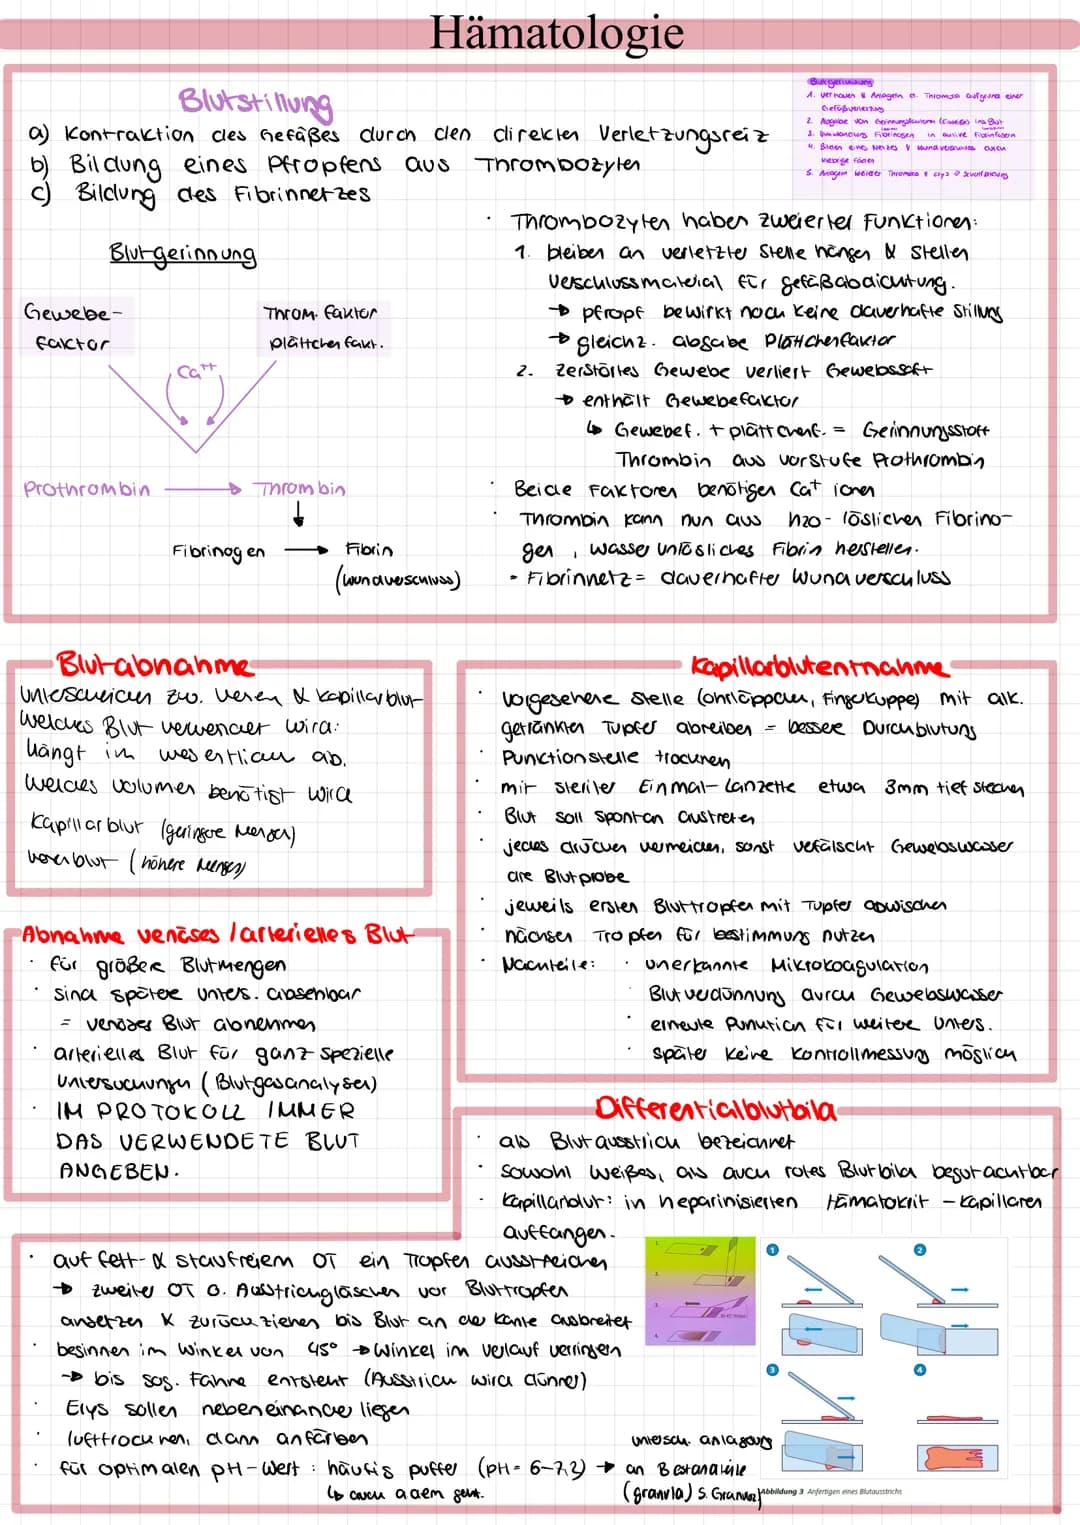 Hämatologie
Blutstillung
a) Kontraktion des Gefäßes durch den direkten Verletzungsreiz
b) Bildung eines Pfropfens aus Thrombozyten
c) Bildung des Fibrinnetzes
Blutgerinnung
Gewebe-
faktor
Throm. faktor
plättchenfakt.
Ca++
Prothrombin
Thrombin
Fibrinogen
Fibrin
(Wundverschluss)
Blutgerinnung
4. Bilden eines Netzes & Wundverschluss durch
klebrige Fäden
· Thrombozyten haben zweierlei Funktionen:
1. bleiben an verletzter Stelle hängen & stellen
Verschlussmaterial für gefäßabdichtung.
→ pfropf bewirkt noch keine dauerhafte Stillung
→ gleichz. abgabe Plättchenfaktor
2. Zerstörtes Gewebe verliert Gewebssaft
→ enthält Gewebefaktor
↳ Gewebef. + plättchenf. = Gerinnungsstoff
Thrombin aus vorstufe Prothrombin
· Beide Faktoren benötigen Ca+ ionen
· Thrombin kann nun aus h2o-löslichen Fibrino-
gen, wasserunlösliches Fibrin herstellen.
- Fibrinnetz = dauerhafter Wundverschluss
Blutabnahme
Unterscheiden zw. Venen & Kapillarblut
Welches Blut verwendet wird:
hängt im wesentlichen ab,
welches Volumen benötigt wird
Kapillarblut (geringere Mengen)
Venenblut (höhere Mengen)
Kapillarblutentnahme
· Vorgesehene Stelle (ohrläppchen, Fingerkuppe) mit alk.
getränkten Tupfer abreiben = bessere Durchblutung
· Punctionstelle trocknen
· mit steriler Einmal-Lanzette etwa 3mm tief stechen
· Blut soll spontan austreten
· jedes drücken vermeiden, sonst verfälscht Gewebswasser
die Blutprobe
· jeweils ersten Bluttropfen mit Tupfer abwischen
· nächsen Tropfen für bestimmung nutzen
· Nachteile: · unerkannte Mikrokoagulation
· Blutverdünnung durch Gewebswasser
· erneute Punktion für weitere Unters.
· später keine Kontrollmessung möglich
Abnahme venöses / arterielles Blut
· für größere Blutmengen
· sind spätere unters. absehbar
= venöses Blut abnehmen
· arterielles Blut für ganz spezielle
Untersuchungen (Blutgasanalysen)
· IM PROTOKOLL IMMER
DAS VERWENDETE BLUT
ANGEBEN.
Differentialblutbild
· als Blutausstrich bezeichnet
· sowohl weißes, als auch rotes Blutbild begutachtbar
- Kapillarblut: in heparinisierten Hämatokrit-Kapillaren
auffangen.
· auf fett- & staubfreiem OT ein Tropfen ausstreichen
→ zweiter OT o. Ausstrichgläschen vor Bluttropfen
ansetzen & zurückziehen bis Blut an der Kante ausbreitet
· beginnen im Winkel von 45° → Winkel im verlauf verringern
→ bis sog. Fahne entsteht (Ausstrich wird dünner)
· Erys sollen nebeneinander liegen
· lufttrocknen, dann anfärben
· für optimalen pH-Wert: häufig puffer (pH = 6-7,2) →
↳ auch a dem geht.
1.
2.
3.
4.
1
2
3
4
Abbildung 3 Anfertigen eines Blutausstrichs